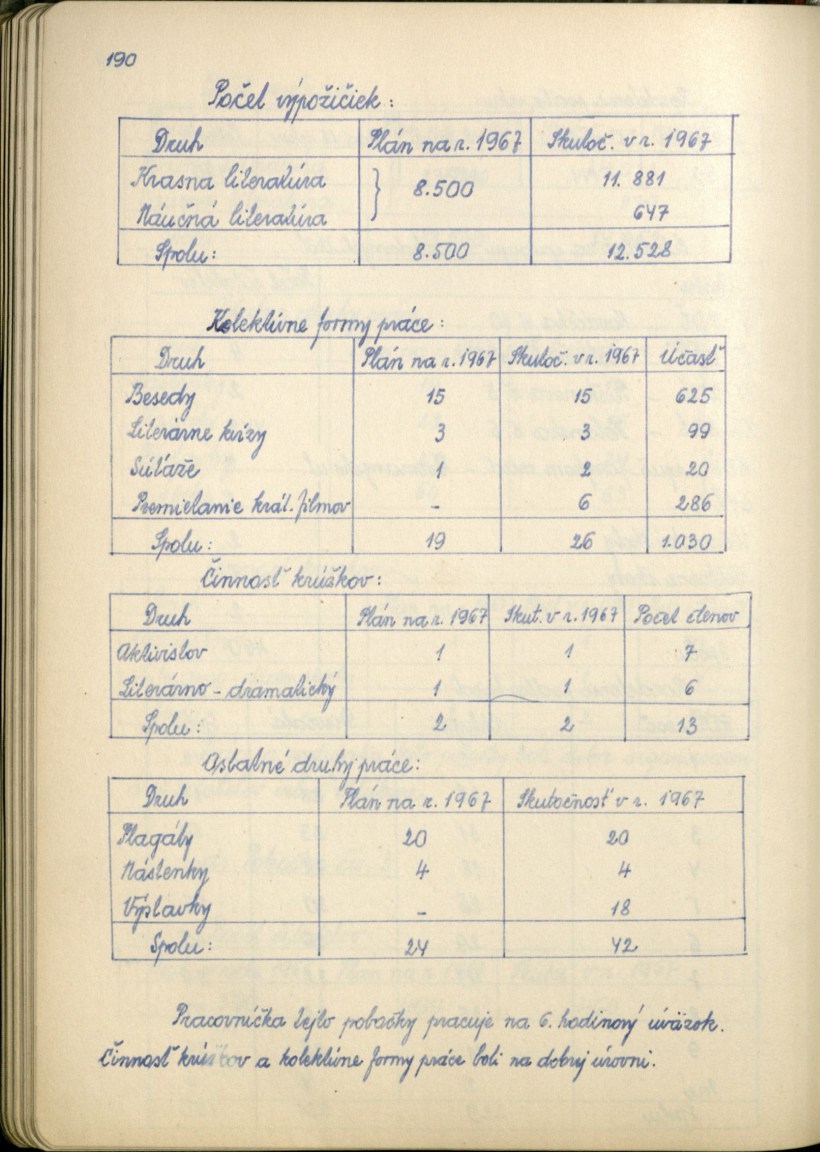 190
Počet výpožičiek:
Druh Plán na r. 1967 Skutoč. v r. 1967
Krasna literatúra } 8.500 11.881
Náučná literatúra 647
Spolu: 8.500 12.528
Kolektívne formy práce:
Druh Plán na r. 1967 Skutoč. v r. 1967 Účasť
Besedy 15 15 625
Literárne kvízy 3 3 99
Súťaže 1 2 20
Premietanie krát. filmov - 6 286
Spolu: 19 26 1.030
Činnosť krúžkov:
Druh Plán na r. 1967 Skut. v r. 1967 Počet členov
Aktivistov 1 1 7
Literárno - dramatický 1 1 6
Spolu: 2 2 13
Ostatné druhy práce:
Druh Plán na r. 1967 Skutočnosť v r. 1967
Plagáty 20 20
Nástenky 4 4
Výstavky - 18
Spolu: 24 42
Pracovníčka tejto pobočky pracuje na 6. hodinový úväzok.
Činnosť krúžkov a kolektívne formy práce boli na dobrej úrovni.